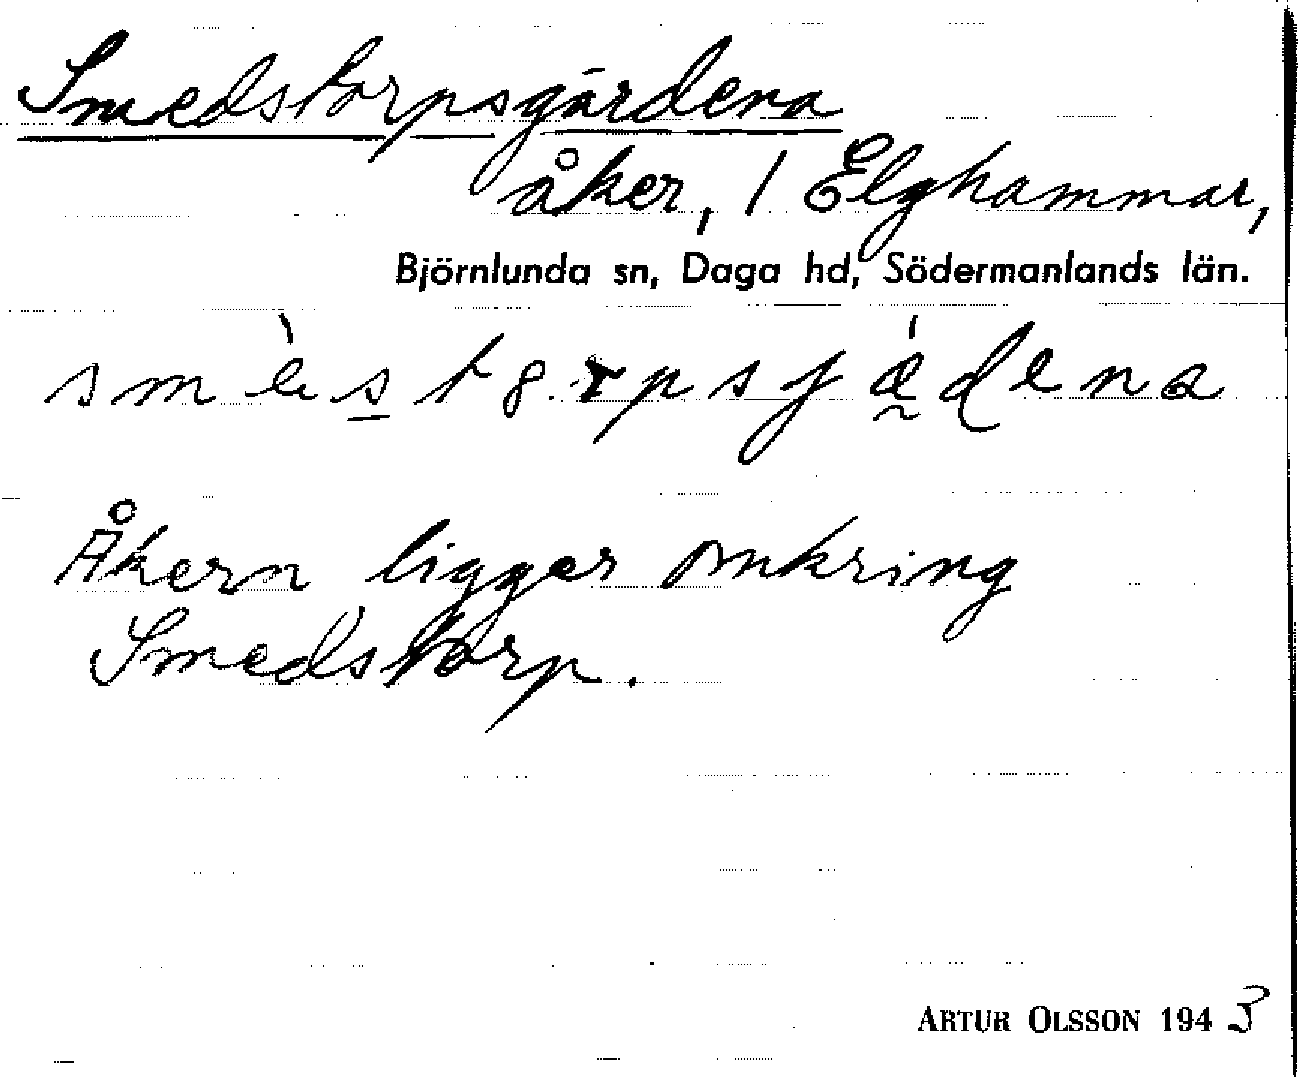 Smedstorpsgärdena
åker, / Elghammar,
Björnlunda sn, Daga hd, Södermanlands län.
Åkern ligger omkring
Smedstorp.
ARTUR OLSSON 1943